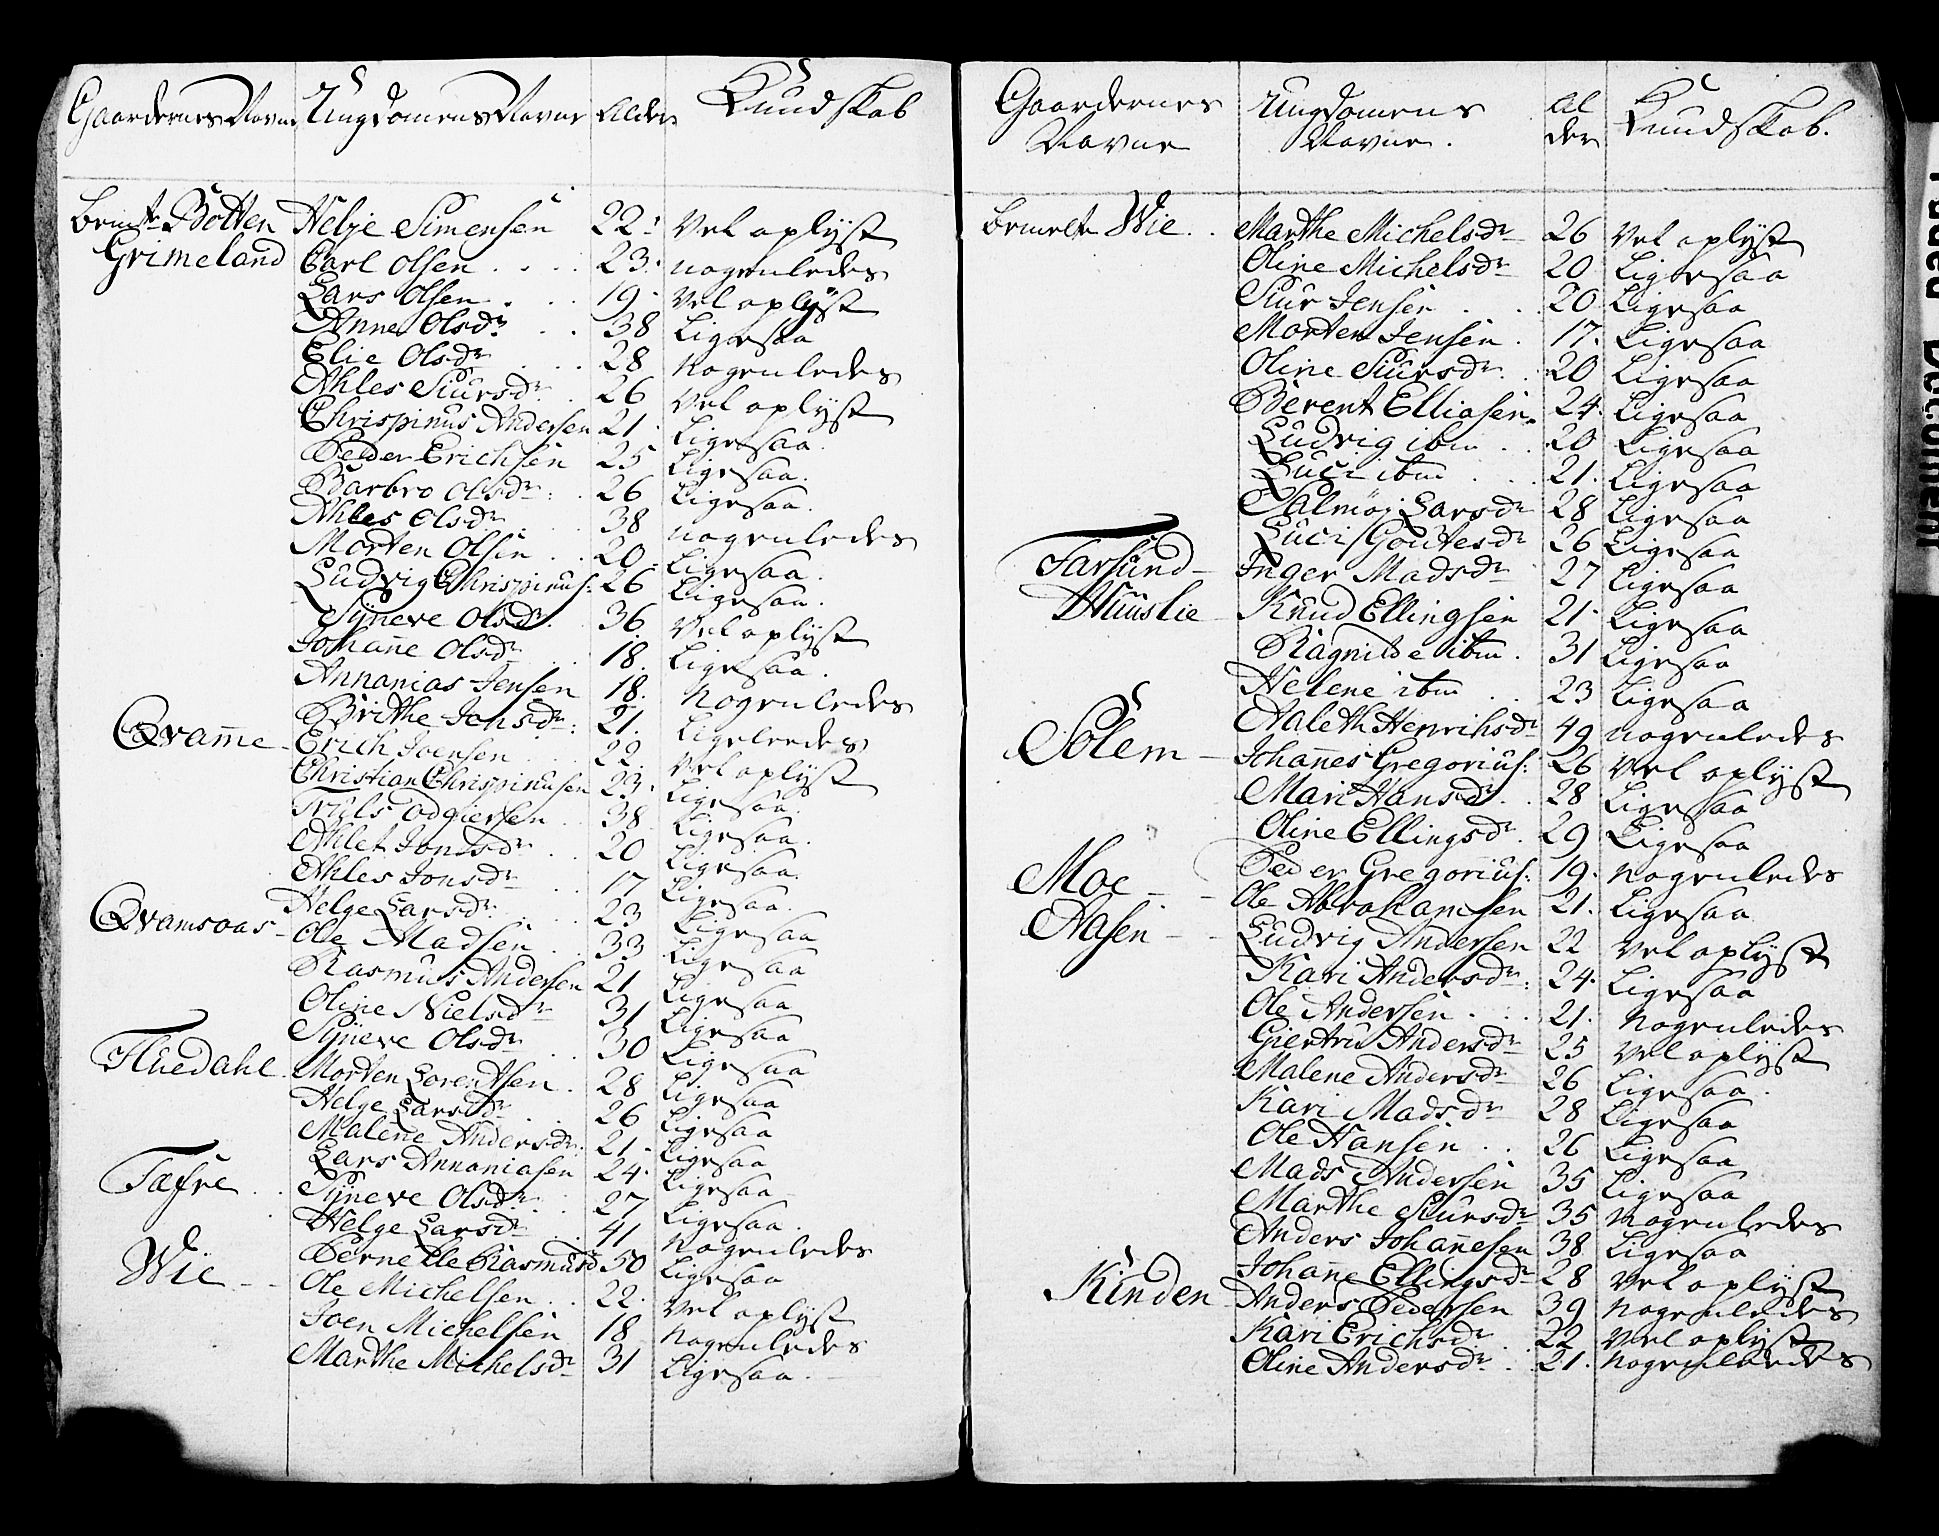 Gaardernes Navne Ungdomens Navne Alder Kundskab
bemte Botten Helje Simensen 22. Vel oplyst
Grimeland Carl Olsen 23. nogenledes
Lars Olsen 19. Vel oplyst
Anne Olsdr 38 Ligesaa
Elie Olsdr 28 Nogenledes
Ahles Siursdr 26 Vel oplyst
Chrispinus Andersen 21. Ligesaa.
Peder Erichsen 25 Ligesaa.
Barbro Olsdr 26 Ligesaa.
Ahles Olsdr 38 nogenledes
Morten Olsen 20. Ligesaa.
Ludvig Chrispinus: 26 Ligesaa.
Sÿneve Olsdr. 36 Vel oplyst
Johan̅e Olsdr 18. Ligesaa.
Annanias Jensen 18. Nogenledes
Brithe Jonsdr: 21. Ligeleedes
Qvam̅e - Erich Joensen 22. Vel oplyst
Christian Chrispinusen 23. Ligesaa.
Niels Odgiersen 38 Ligesaa.
Ahlet Jonsdr 20 Ligesaa.
Ahles Jonsdr 17 Ligesaa.
Qvamsaas - Helge Larsdr 23 Ligesaa
Ole Madsen 33 Ligesaa
Rasmus Andersen 21 Ligesaa
Oline Nielsdr 31 Ligesaa
Sÿneve Olsdr 30 Ligesaa
Fluedahl Morten Lorentsen 28 Ligesaa
Helge Larsdr 26 Ligesaa
Malene Andersdr: 21. Ligesaa
Tafre Lars Annaniasen 24. Ligesaa
Sÿneve Olsdr 27 Ligesaa.
Helge Larsdr 41 Nogenledes
Wie Pernelle Rasmusd 50 Ligesaa
Ole Michelsen 22. Vel oplyst
Joen Michelsen 18 Nogenledes
Marthe Michelsdr 31 Ligesaa.
Gaardernes Navne Ungdomens Navne. Al der Kundskab.
bemelte Wie Marthe Michelsdr 26 Vel oplyst
Oline Michelsdr 20 Ligesaa
Siur Jensen 20 Ligesaa
Morten Jensen 17. Ligesaa
Oline Siursdr 20 Ligesaa
Berent Elliasen 24. Ligesaa
Ludvig ibm 20 Ligesaa
Luci ibm 21. Ligesaa
Salmöi Larsdr 28 Ligesaa
Luci Goutesdr 26 Ligesaa
Farsund - Inger Madsdr 27 Ligesaa
Huuslie Knud Ellingsen 21. Ligesaa
Ragnilde ibm 31 Ligesaa
Helene ibm 23 Ligesaa
Aaleth Henrihsdr 49 nogenledes
Solem - Johan̅es Gregorius: 26 Vel oplyst
Mari Hansdr 28 Ligesaa
Oline Ellingsdr 29 Ligesaa
Moe - Peder Gregorius: 19. Nogenledes
Ole Abrahamsen 21. Ligesaa
Aasen - Ludvig Andersen 22 Vel oplyst
Kari Andersdr: 24. Ligesaa
Ole Andersen 21. Nogenledes
Giertru Andersdr 25 Vel oplyst
Malene Andersdr 26 Ligesaa.
Kari Madsdr 28 Ligesaa
Ole Hansen 26 Ligesaa
Mads Andersen 35 Ligesaa
Marthe Siursdr 35 Nogenledes
Anders Johan̅esen 38 Ligesaa
Johan̅e Ellingsdr 28 Vel oplyst
Kinden Anders Pedersen 39 Nogenledes
Kari Erichsdr 22 Vel oplyst
Oline Andersdr 21. Nogenledes